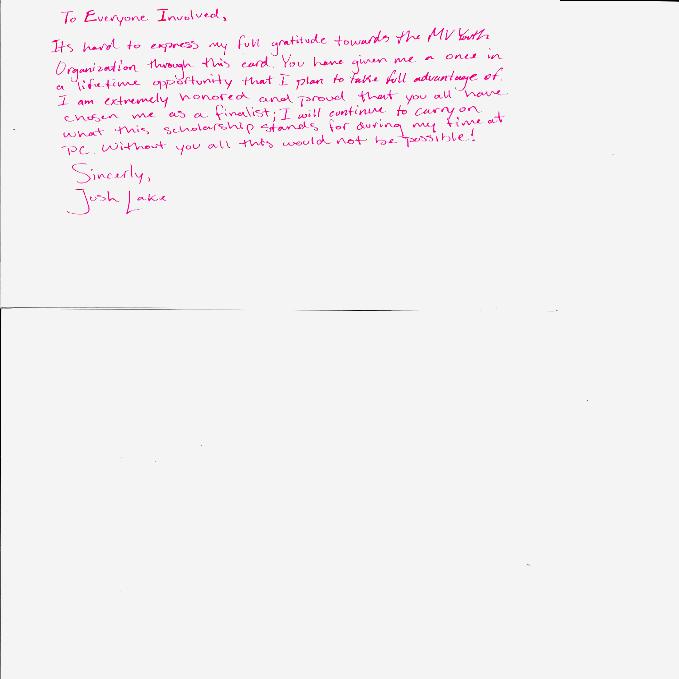 To Everyone Involved,
Its hard to express my full gratitude towards the MV Youth
Organization through this card. You have given me a once in
a lifetime opportunity that I plan to take full advantage of.
I am extremely honored and proud that you all have
chosen me as a finalist; I will continue to carry on
what this scholarship stands for during my time at
PC. Without you all this would not be possible!
Sincerly,
Josh Lake